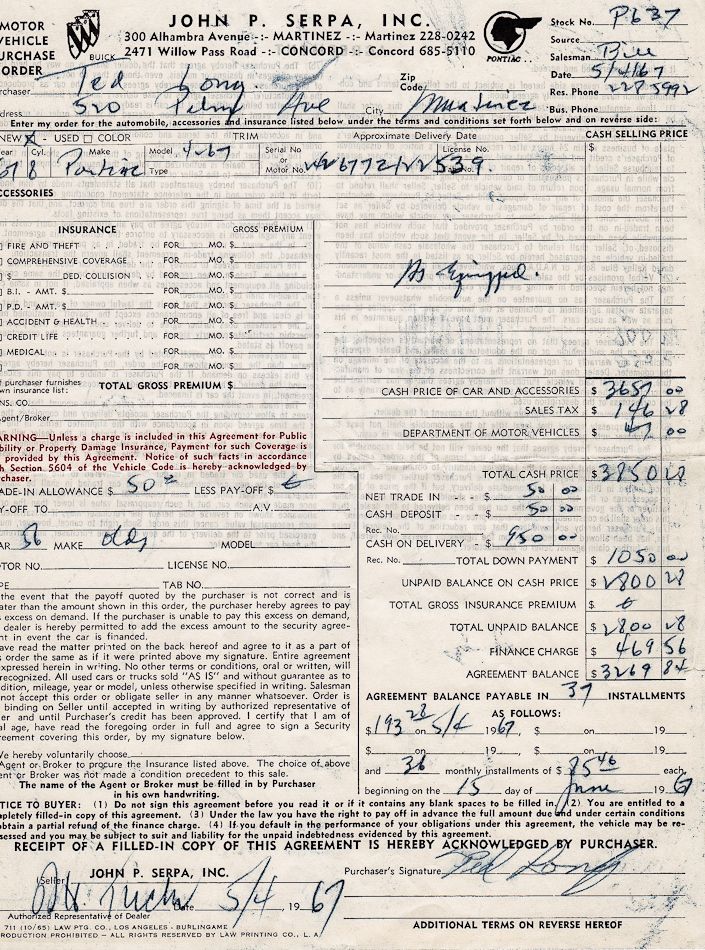 MOTOR
VEHICLE
PURCHASE
ORDER
BUICK
JOHN P. SERPA, INC.
300 Alhambra Avenue -:- MARTINEZ -:- Martinez 228-0242
2471 Willow Pass Road -:- CONCORD -:- Concord 685-5110
PONTIAC
Stock No. P637
Source
Salesman Bill
Date 5/4/67
Res. Phone 228 5992
Bus. Phone
rchaser Ted Long
Zip
Code
ddress 520 Palm Ave City Martinez
Enter my order for the automobile, accessories and insurance listed below under the terms and conditions set forth below and on reverse side:
NEW X - USED □ COLOR TRIM Approximate Delivery Date CASH SELLING PRICE
ear 67 Cyl. 8 Make Pontiac Model 4-67 Type Serial No or Motor No. License No. Tab No. $
CCESSORIES
INSURANCE GROSS PREMIUM
FIRE AND THEFT FOR MO. $
COMPREHENSIVE COVERAGE FOR MO. $
$ DED. COLLISION FOR MO. $
B.I. - AMT. $ FOR MO. $
P.D. - AMT. $ FOR MO. $
ACCIDENT & HEALTH FOR MO. $
CREDIT LIFE FOR MO. $
MEDICAL FOR MO. $
As Equipped.
f purchaser furnishes
wn insurance list: TOTAL GROSS PREMIUM $
NS. CO.
gent/Broker
CASH PRICE OF CAR AND ACCESSORIES $ 3657 00
SALES TAX $ 146 28
DEPARTMENT OF MOTOR VEHICLES $ 47 00
TOTAL CASH PRICE $ 3850 28
ARNING—Unless a charge is included in this Agreement for Public
bility or Property Damage Insurance, Payment for such Coverage is
provided by this Agreement. Notice of such facts in accordance
h Section 5604 of the Vehicle Code is hereby acknowledged by
rchaser.
ADE-IN ALLOWANCE $ 50 LESS PAY-OFF $
AY-OFF TO A.V.
AR 56 MAKE Olds MODEL
OTOR NO. LICENSE NO.
PE TAB NO.
NET TRADE IN - - $ 50 00
CASH DEPOSIT - - $ 50 00
Rec. No.
CASH ON DELIVERY - $ 950 00
Rec. No. TOTAL DOWN PAYMENT $ 1050 00
UNPAID BALANCE ON CASH PRICE $ 2800 28
TOTAL GROSS INSURANCE PREMIUM $
TOTAL UNPAID BALANCE $ 2800 28
FINANCE CHARGE $ 469 56
AGREEMENT BALANCE $ 3269 84
AGREEMENT BALANCE PAYABLE IN 37 INSTALLMENTS
AS FOLLOWS:
$ 193 28 on 5/4 1967, $ on 19
$ on 19 , $ on 19
and 36 monthly installments of $ 85 46 each,
beginning on the 15 day of June 1967
the event that the payoff quoted by the purchaser is not correct and is
ater than the amount shown in this order, the purchaser hereby agrees to pay
s excess on demand. If the purchaser is unable to pay this excess on demand,
dealer is hereby permitted to add the excess amount to the security agree-
nt in event the car is financed.
ave read the matter printed on the back hereof and agree to it as a part of
s order the same as if it were printed above my signature. Entire agreement
expressed herein in writing. No other terms or conditions, oral or written, will
recognized. All used cars or trucks sold "AS IS" and without guarantee as to
dition, mileage, year or model, unless otherwise specified in writing. Salesman
not accept this order or obligate seller in any manner whatsoever. Order is
binding on Seller until accepted in writing by authorized representative of
er and until Purchaser's credit has been approved. I certify that I am of
al age, have read the foregoing order in full and agree to sign a Security
reement covering this order, by my signature below.
We hereby voluntarily choose
Agent or Broker to procure the Insurance listed above. The choice of above
ent or Broker was not made a condition precedent to this sale.
The name of the Agent or Broker must be filled in by Purchaser
in his own handwriting.
TICE TO BUYER: (1) Do not sign this agreement before you read it or if it contains any blank spaces to be filled in. (2) You are entitled to a
pletely filled-in copy of this agreement. (3) Under the law you have the right to pay off in advance the full amount due and under certain conditions
obtain a partial refund of the finance charge. (4) If you default in the performance of your obligations under this agreement, the vehicle may be re-
sessed and you may be subject to suit and liability for the unpaid indebtedness evidenced by this agreement.
RECEIPT OF A FILLED-IN COPY OF THIS AGREEMENT IS HEREBY ACKNOWLEDGED BY PURCHASER.
(Seller) JOHN P. SERPA, INC. Purchaser's Signature Ted Long
Date 5/4, 1967
Authorized Representative of Dealer
711 (10/65) LAW PTG. CO., LOS ANGELES - BURLINGAME
RODUCTION PROHIBITED - ALL RIGHTS RESERVED BY LAW PRINTING CO., L. A.
ADDITIONAL TERMS ON REVERSE HEREOF